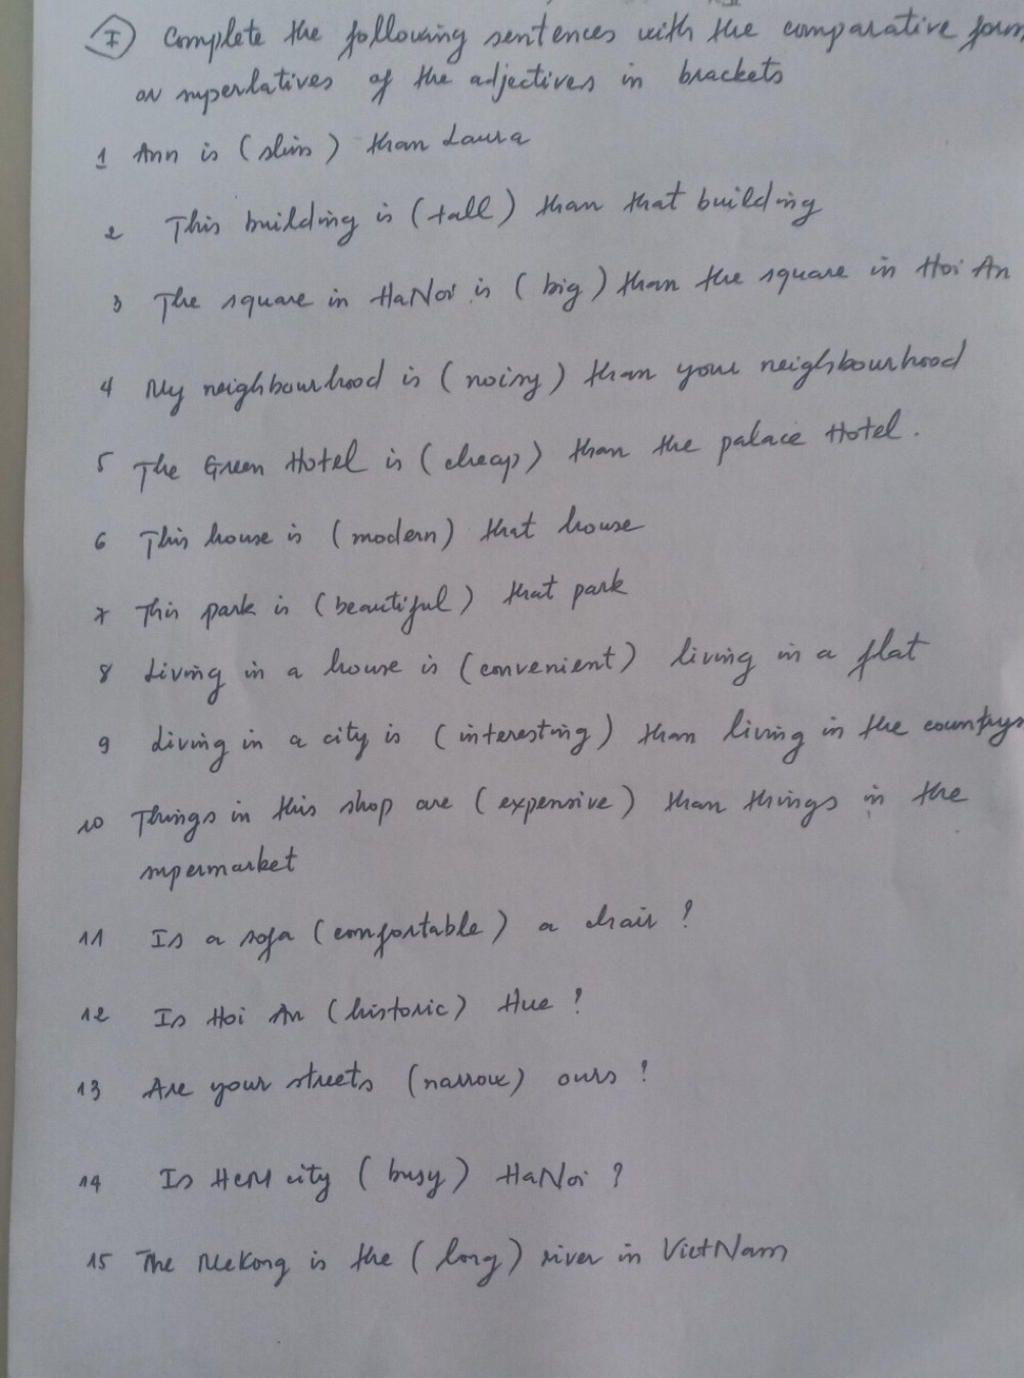 I Complete the following sentences with the comparative form
or superlatives of the adjectives in brackets
1 Ann is (slim) than Laura
2 This building is (tall) than that building
3 The square in HaNoi is (big) than the square in Hoi An
4 My neighbourhood is (noisy) than your neighbourhood
5 The Green Hotel is (cheap) than the palace Hotel.
6 This house is (modern) that house
7 This park is (beautiful) that park
8 Living in a house is (convenient) living in a flat
9 Living in a city is (interesting) than living in the countrys
10 Things in this shop are (expensive) than things in the
supermarket
11 Is a sofa (comfortable) a chair?
12 Is Hoi An (historic) Hue?
13 Are your streets (narrow) ours?
14 Is HCM city (busy) HaNoi?
15 The MeKong is the (long) river in VietNam